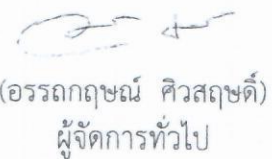 (อรรถกฤษณ์ ศิวสฤษดิ์)
ผู้จัดการทั่วไป